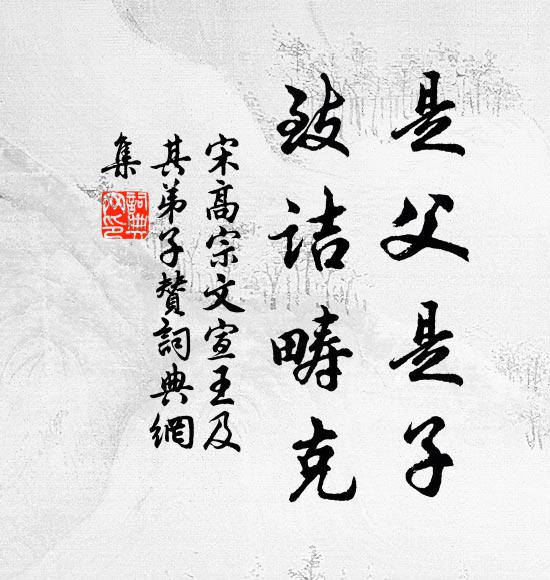 是父是子
致诘畴克
宋高宗文宣王及
其弟子赞词典網
集
詞典網印